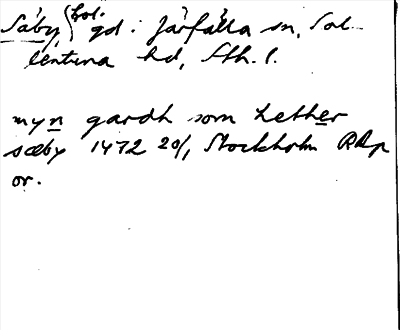 Säby, (hol. gd i Järfälla sn, Sol-
lentuna hd, Sth. l.
myn gardh som hether
sæby 1472 20/1 Stockholm RAp
or.